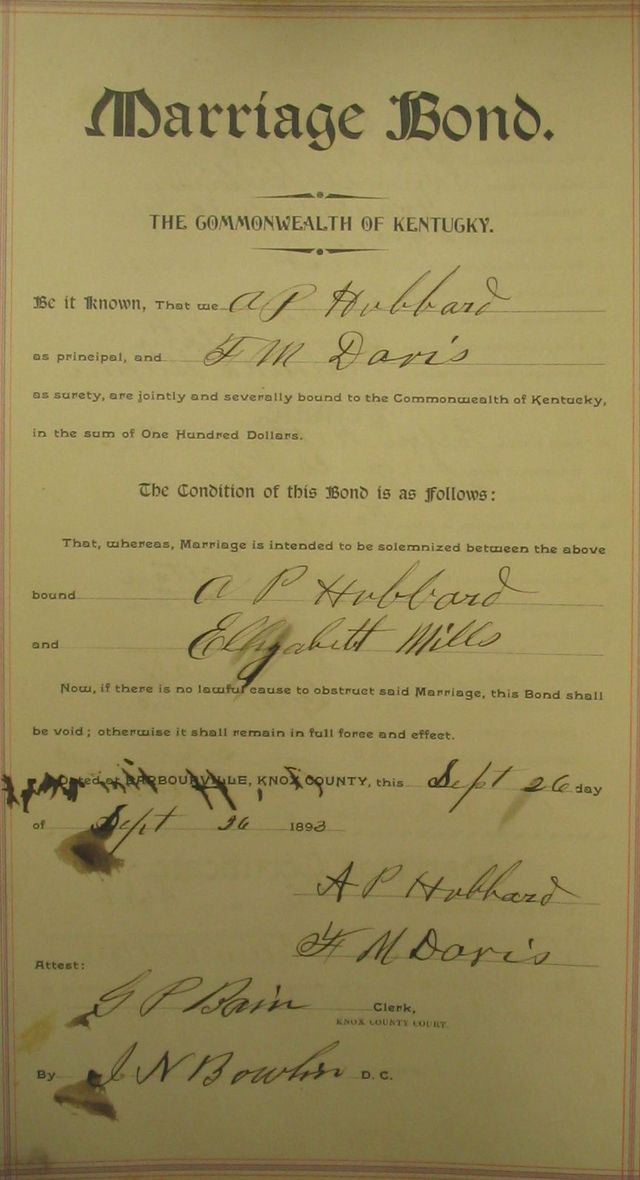 Marriage Bond.
THE COMMONWEALTH OF KENTUCKY.
Be it Known, That we A P Hubbard
as principal, and F M Davis
as surety, are jointly and severally bound to the Commonwealth of Kentucky,
in the sum of One Hundred Dollars.
The Condition of this Bond is as Follows:
That, whereas, Marriage is intended to be solemnized between the above
bound A P Hubbard
and Elizabett Mills
Now, if there is no lawful cause to obstruct said Marriage, this Bond shall
be void; otherwise it shall remain in full force and effect.
Dated at BARBOURVILLE, KNOX COUNTY, this Sept 26 day
of Sept 26 1893
A P Hubbard
F M Davis
Attest:
G P Bain Clerk,
KNOX COUNTY COURT.
By J N Bowlin D. C.